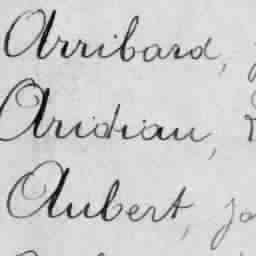 Arribard,
Aridiau,
Aubert, Jo